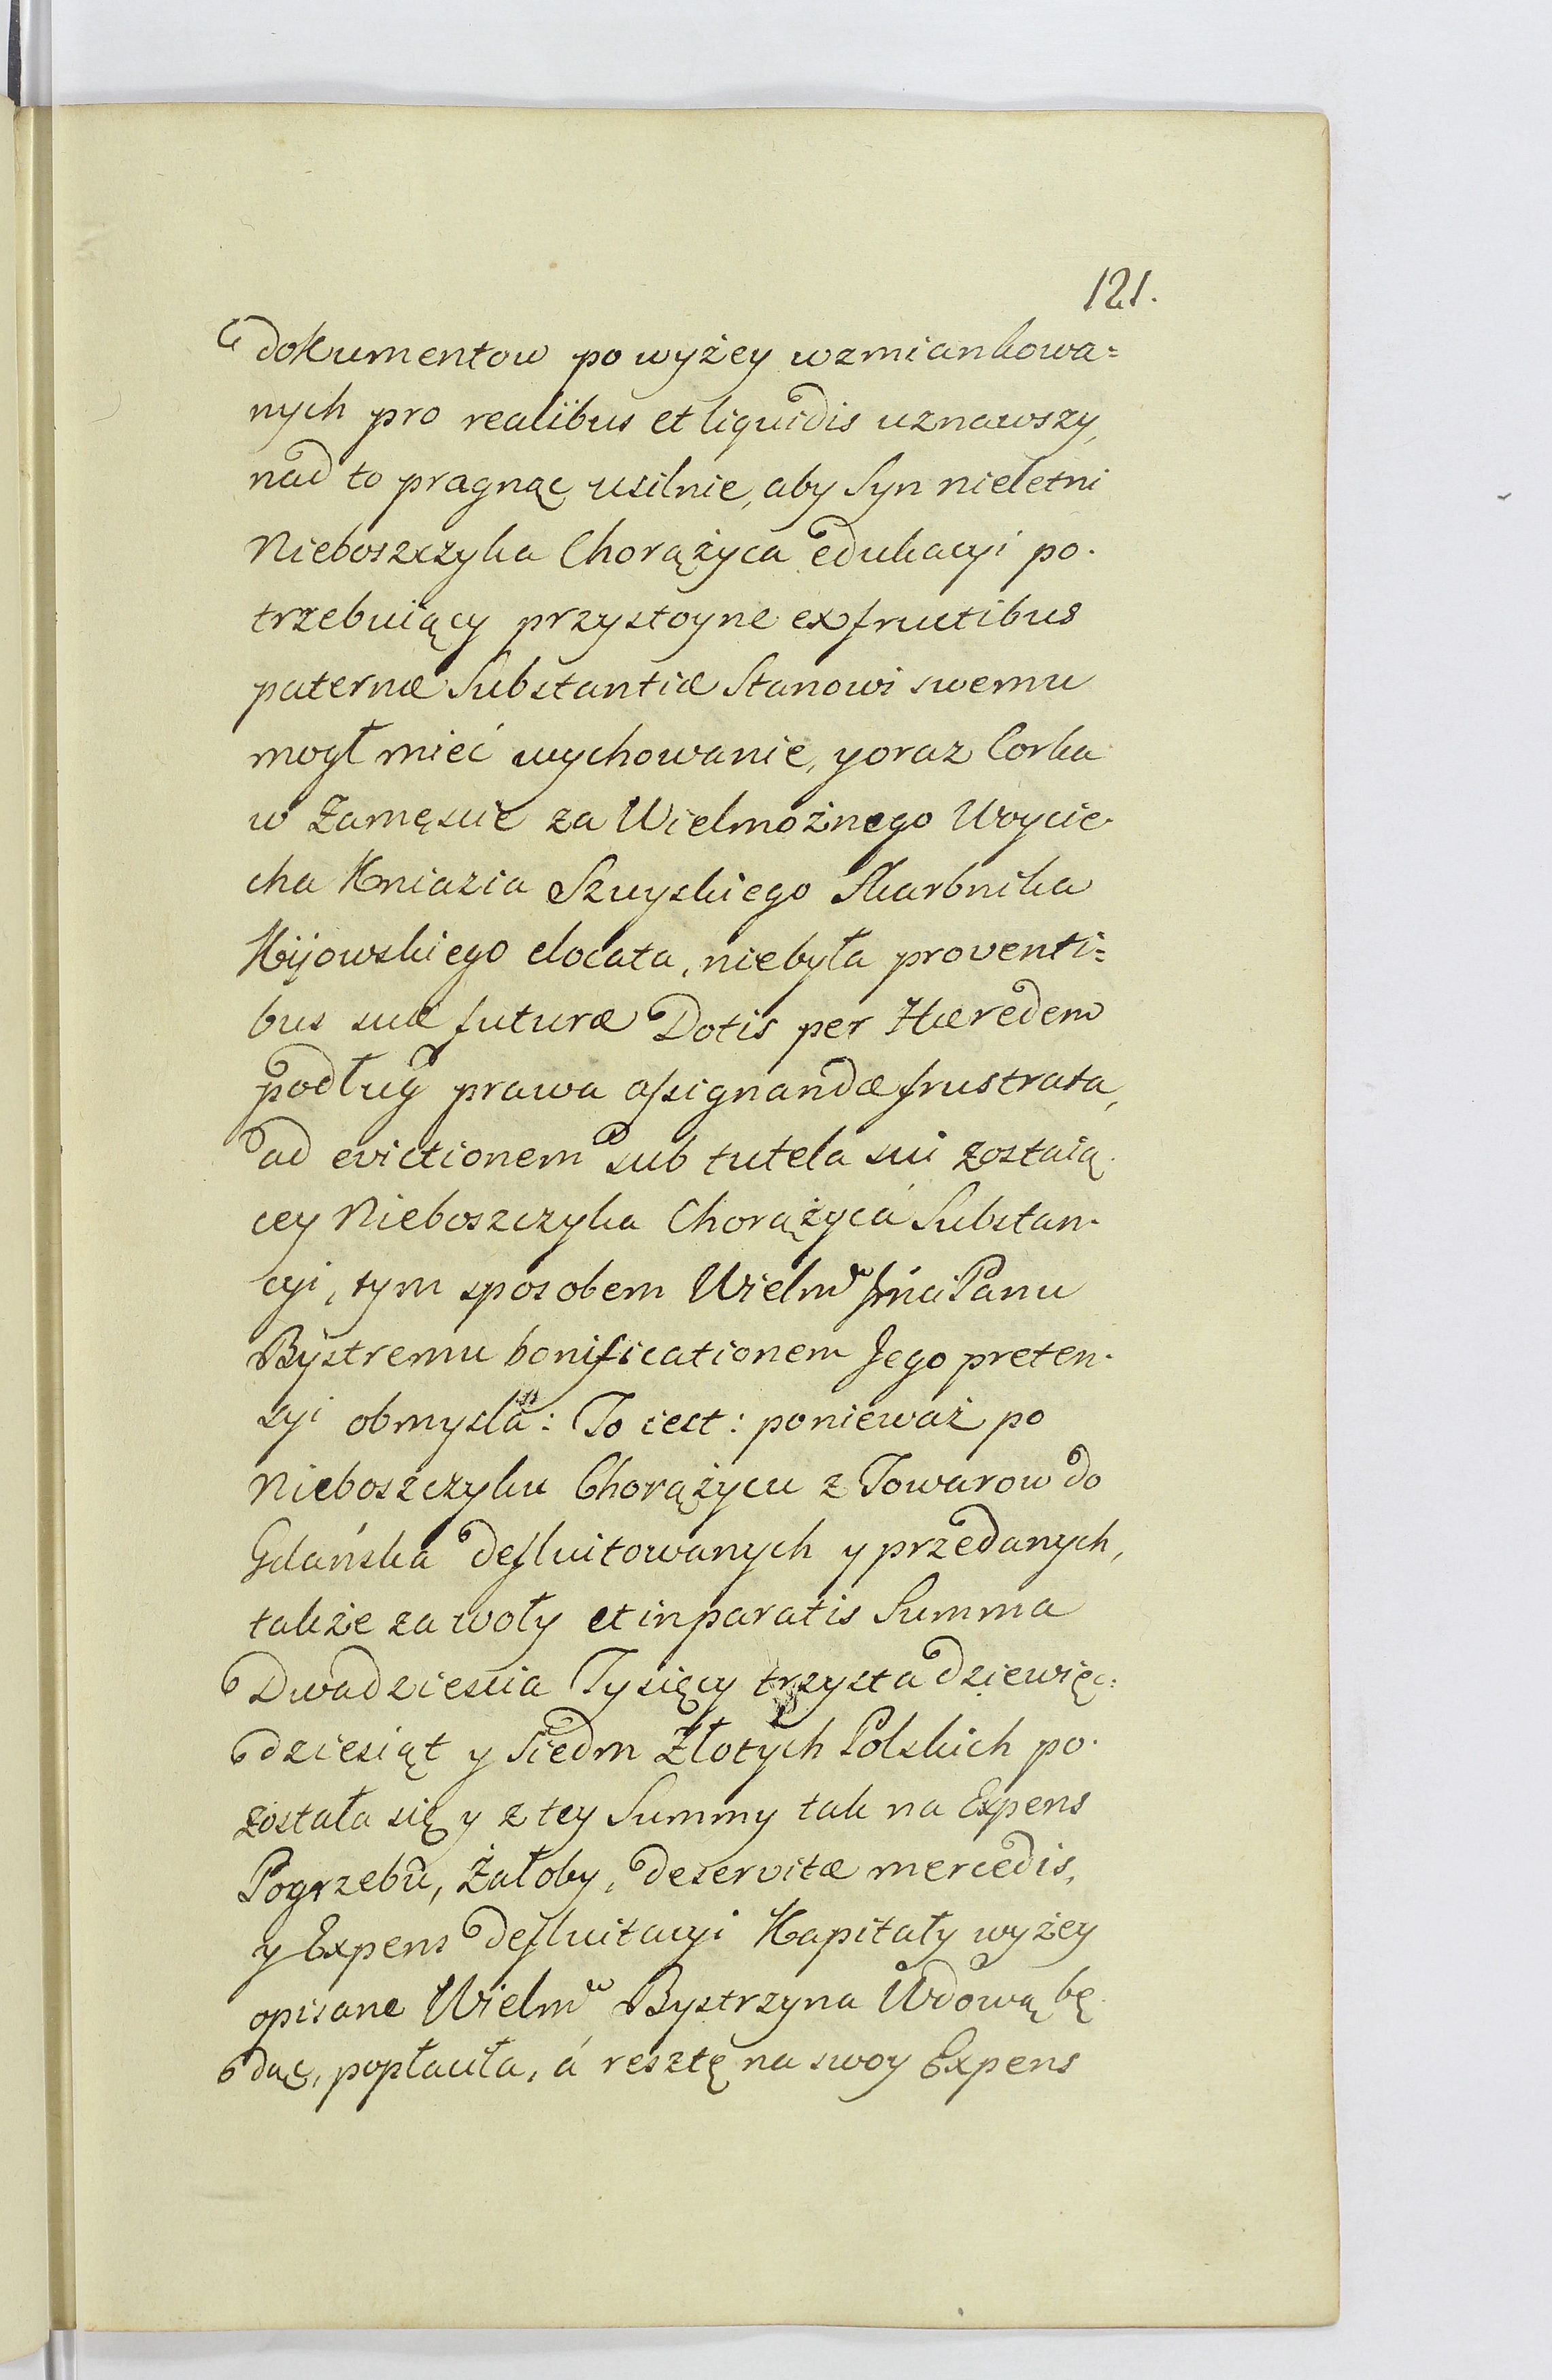 121.
dokumentow po wyżey wzmiankowa=
nych pro realibus et liquidis uznawszy,
nad to pragnąc usilnie, aby Syn nieletni
Nieboszczyka Chorążyca edukacyi po-
trzebuiący przystoyne ex fructibus
paternæ Substantiæ Stanowi swemu
mogł mieć wychowanie, y oraz Corka
w Zamęscie za Wielmożnego Woycie-
cha Kniazia Szuyskiego Skarbnika
Kijowskiego elocata, niebyła proventi=
bus suæ futuræ Dotis per Hæredem
podług prawa assignandæ frustrata,
ad evictionem sub tutela sui zostaią-
cey Nieboszczyka Chorążyca Substan-
cyi, tym sposobem Wielmu Jmci Panu
Bystremu bonificationem Jego preten-
syi obmysla: To iest: ponieważ po
Nieboszczyku Chorążycu z Towarow do
Gdańska defluitowanych y przedanych,
także za woły et in paratis Summa
Dwadziescia Tysięcy trzysta dziewięć=
dziesiąt y siedm Złotych Polskich po-
została się y z tey Summy tak na Expens
Pogrzebu, Żałoby, deservitæ mercedis,
y Expens defluitacyi Kapitały wyżey
opisane Wielma Bystrzyna Wdową bę-
dąc, popłaciła, á resztę na swoy Expens